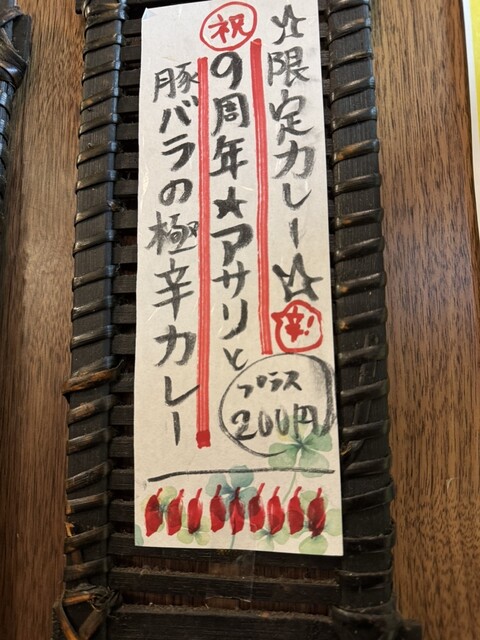 ☆限定カレー☆
辛!
プラス
200円
祝
9周年★アサリと
豚バラの極辛カレー